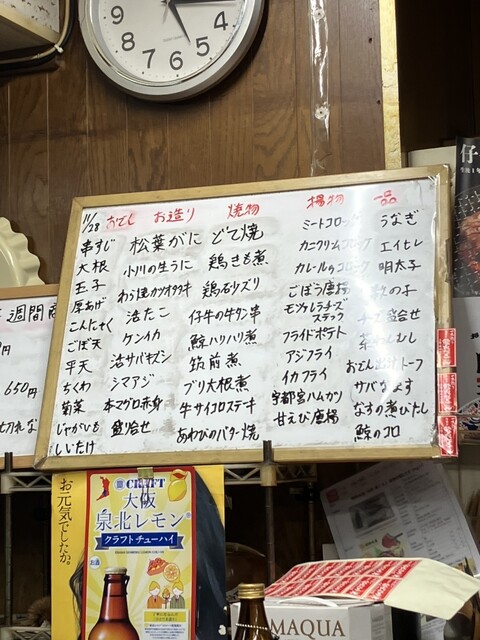 9
8
7
6
5
4
3
11/28
おでん
串すじ
大根
玉子
厚あげ
こんにゃく
ごぼ天
平天
ちくわ
菊菜
じゃがいも
しいたけ
お造り
松葉がに
小川の生うに
わら焼カツオタタキ
活たこ
ケンイカ
活サバキズシ
シマアジ
本マグロ赤身
盛合せ
焼物
どて焼
鶏きも煮
鶏石ズリ
仔牛の牛タン串
鯨ハリハリ煮
筑前煮
ブリ大根煮
牛サイコロステーキ
あわびのバター焼
揚物
ミートコロッケ
カニクリームコロッケ
カレールのコロッケ
ごぼう唐揚
モツァレラチーズ
ステック
フライドポテト
アジフライ
イカフライ
宇都宮ハムカツ
甘えび唐揚
一品
うなぎ
エイヒレ
明太子
数の子
チーズ盛合せ
茶わんむし
おでん出汁トーフ
サバなます
なすの煮びたし
鯨のコロ
週間
円
650円
切れな
お元気でしたか。
CRAFT
大阪
泉北レモン
クラフトチューハイ
お酒
MAQUA
仔